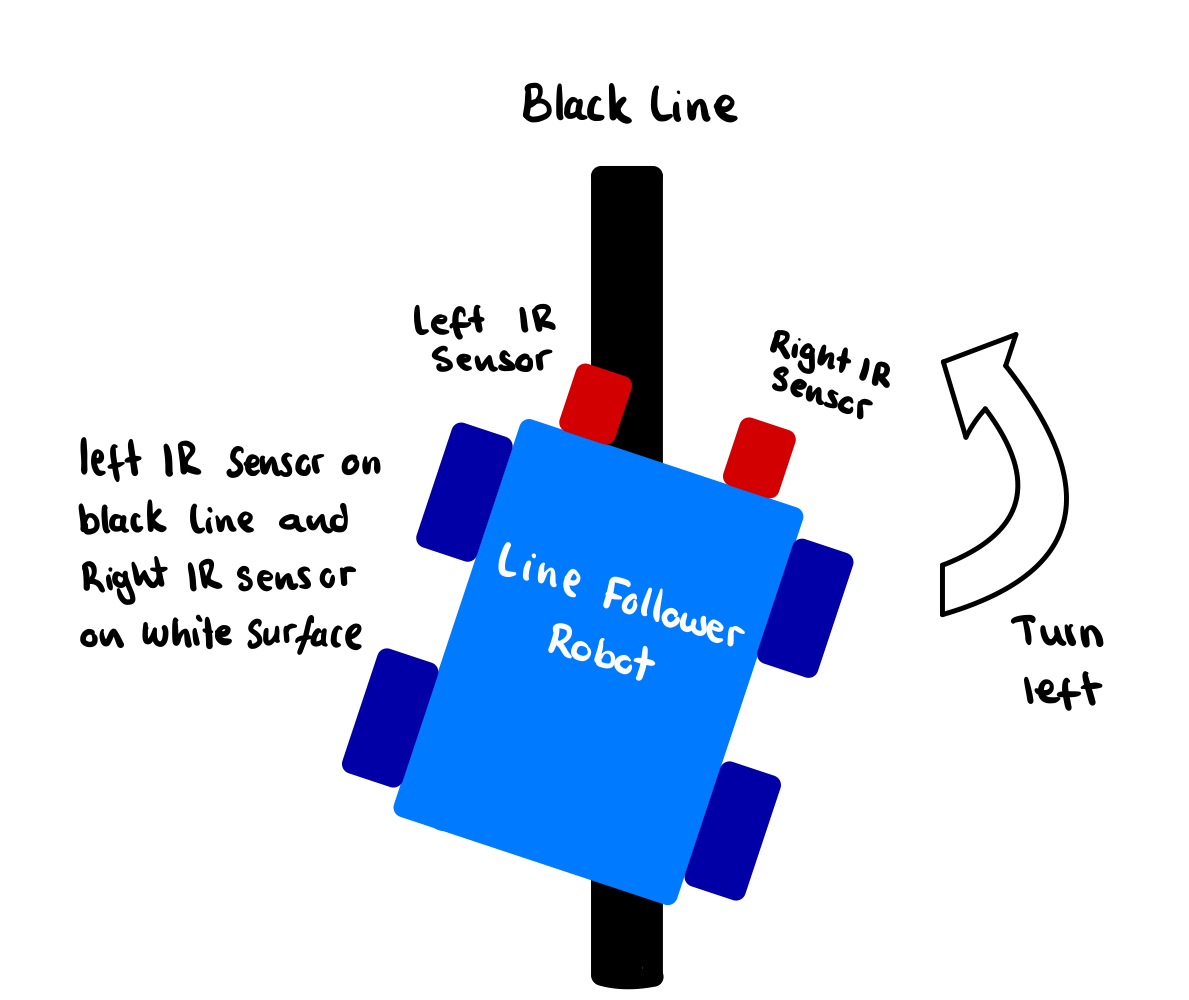 Black Line
Left IR
Sensor
Right IR
Sensor
left IR Sensor on
black Line and
Right IR sensor
on white surface
Line Follower
Robot
Turn
left